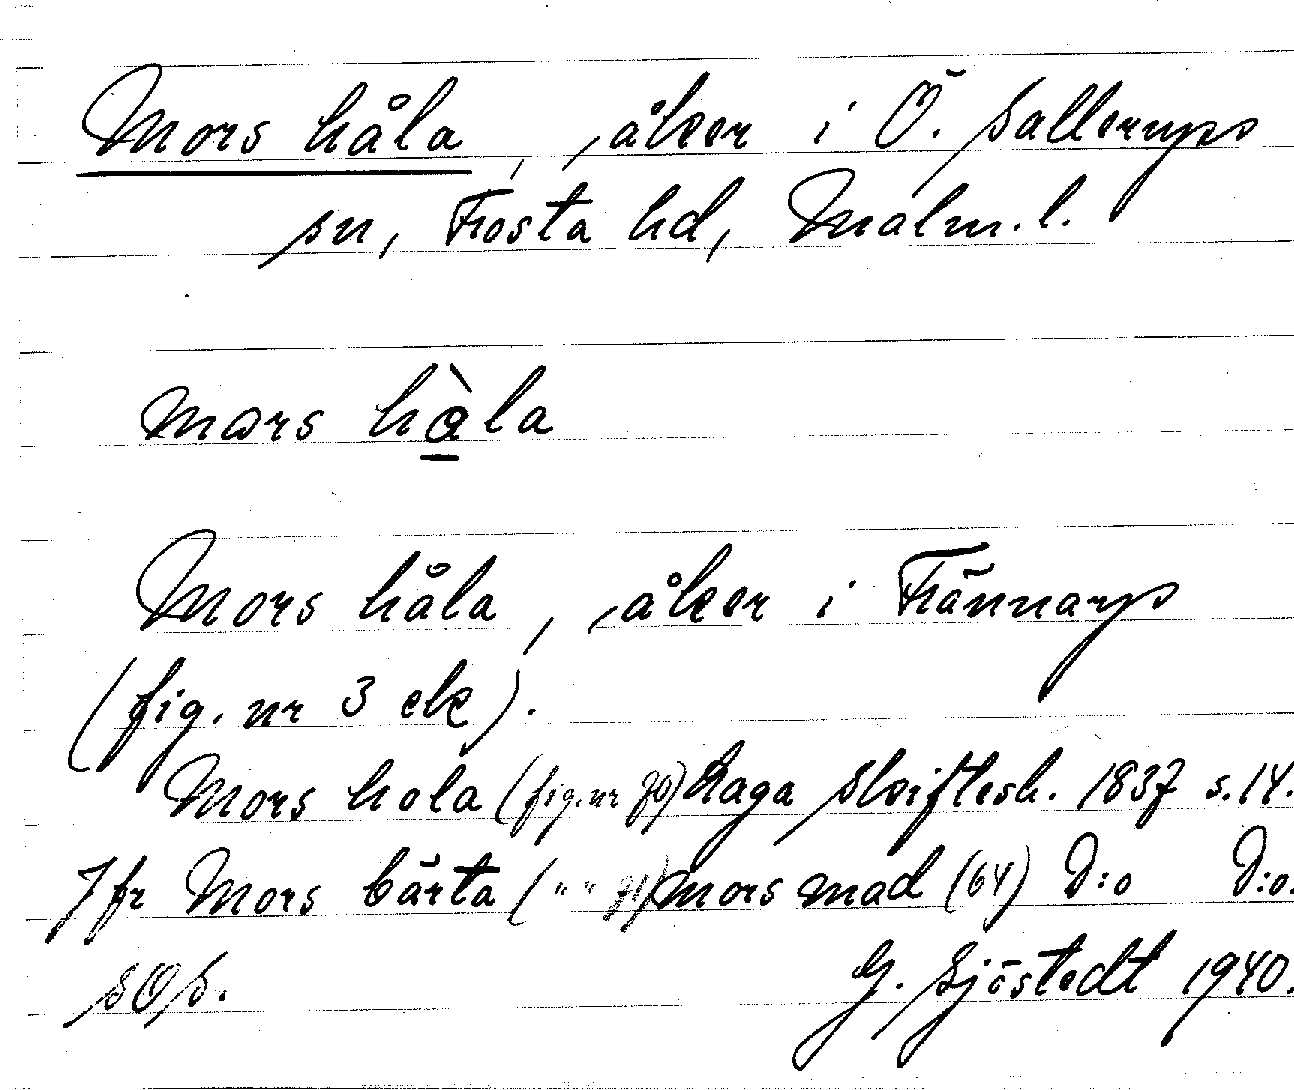 Mors håla, åker i Ö. Sallerups
sn, Frosta hd, Malm. l.
mɑrs hàla
Mors håla, åker i Trännarp
(fig. nr 3 ek).
Mors hola (fig. nr 70) Laga Skifteshl. 1837 s. 14.
Jfr Mors bärta (" " 71) mors mad (64) D:o D:o.
SOS. G. Sjöstedt 1940.